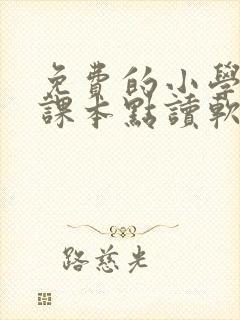 免費的小學
課本點讀軟
路慈光